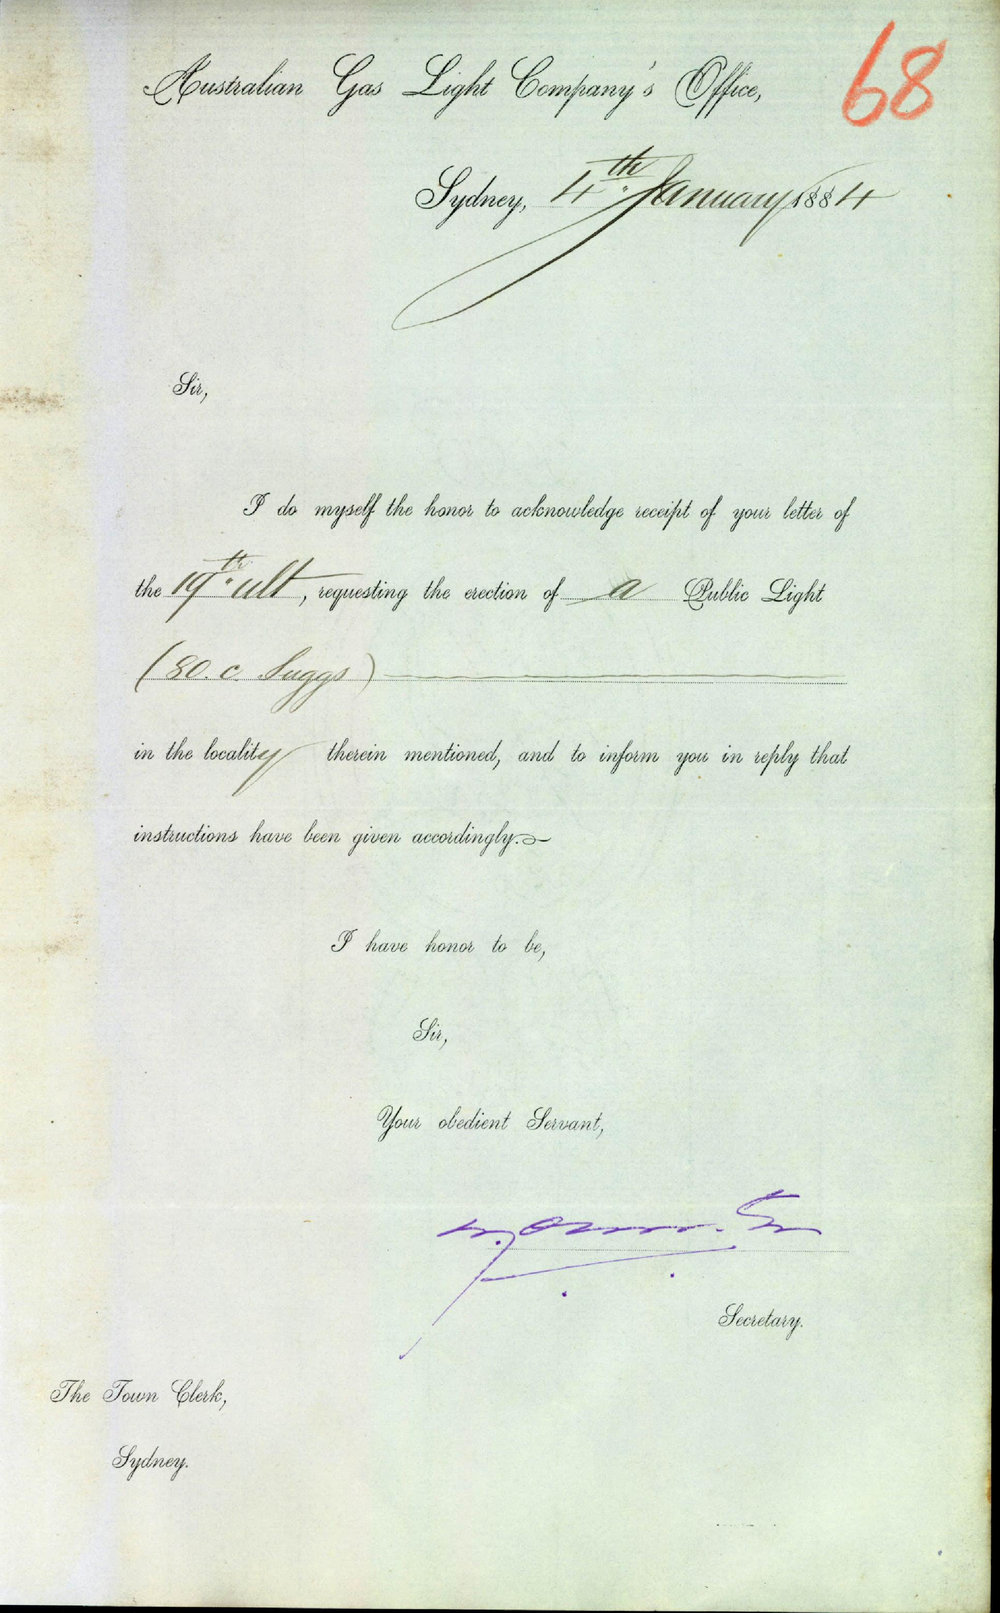 68
Australian Gas Light Company's Office,
Sydney, 4th January 1884
Sir,
I do myself the honor to acknowledge receipt of your letter of
the 19th ult, requesting the erection of a Public Light
(80. c. Suggs)
in the locality therein mentioned, and to inform you in reply that
instructions have been given accordingly.
I have honor to be,
Sir,
Your obedient Servant,
Secretary.
The Town Clerk,
Sydney.